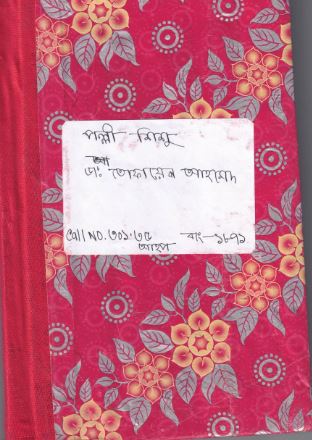 পল্লী শিশু
ডা: তোফায়েল আহমেদ
Call NO. ৩০১.৩৫
আহপ
বাং-১৮৭১